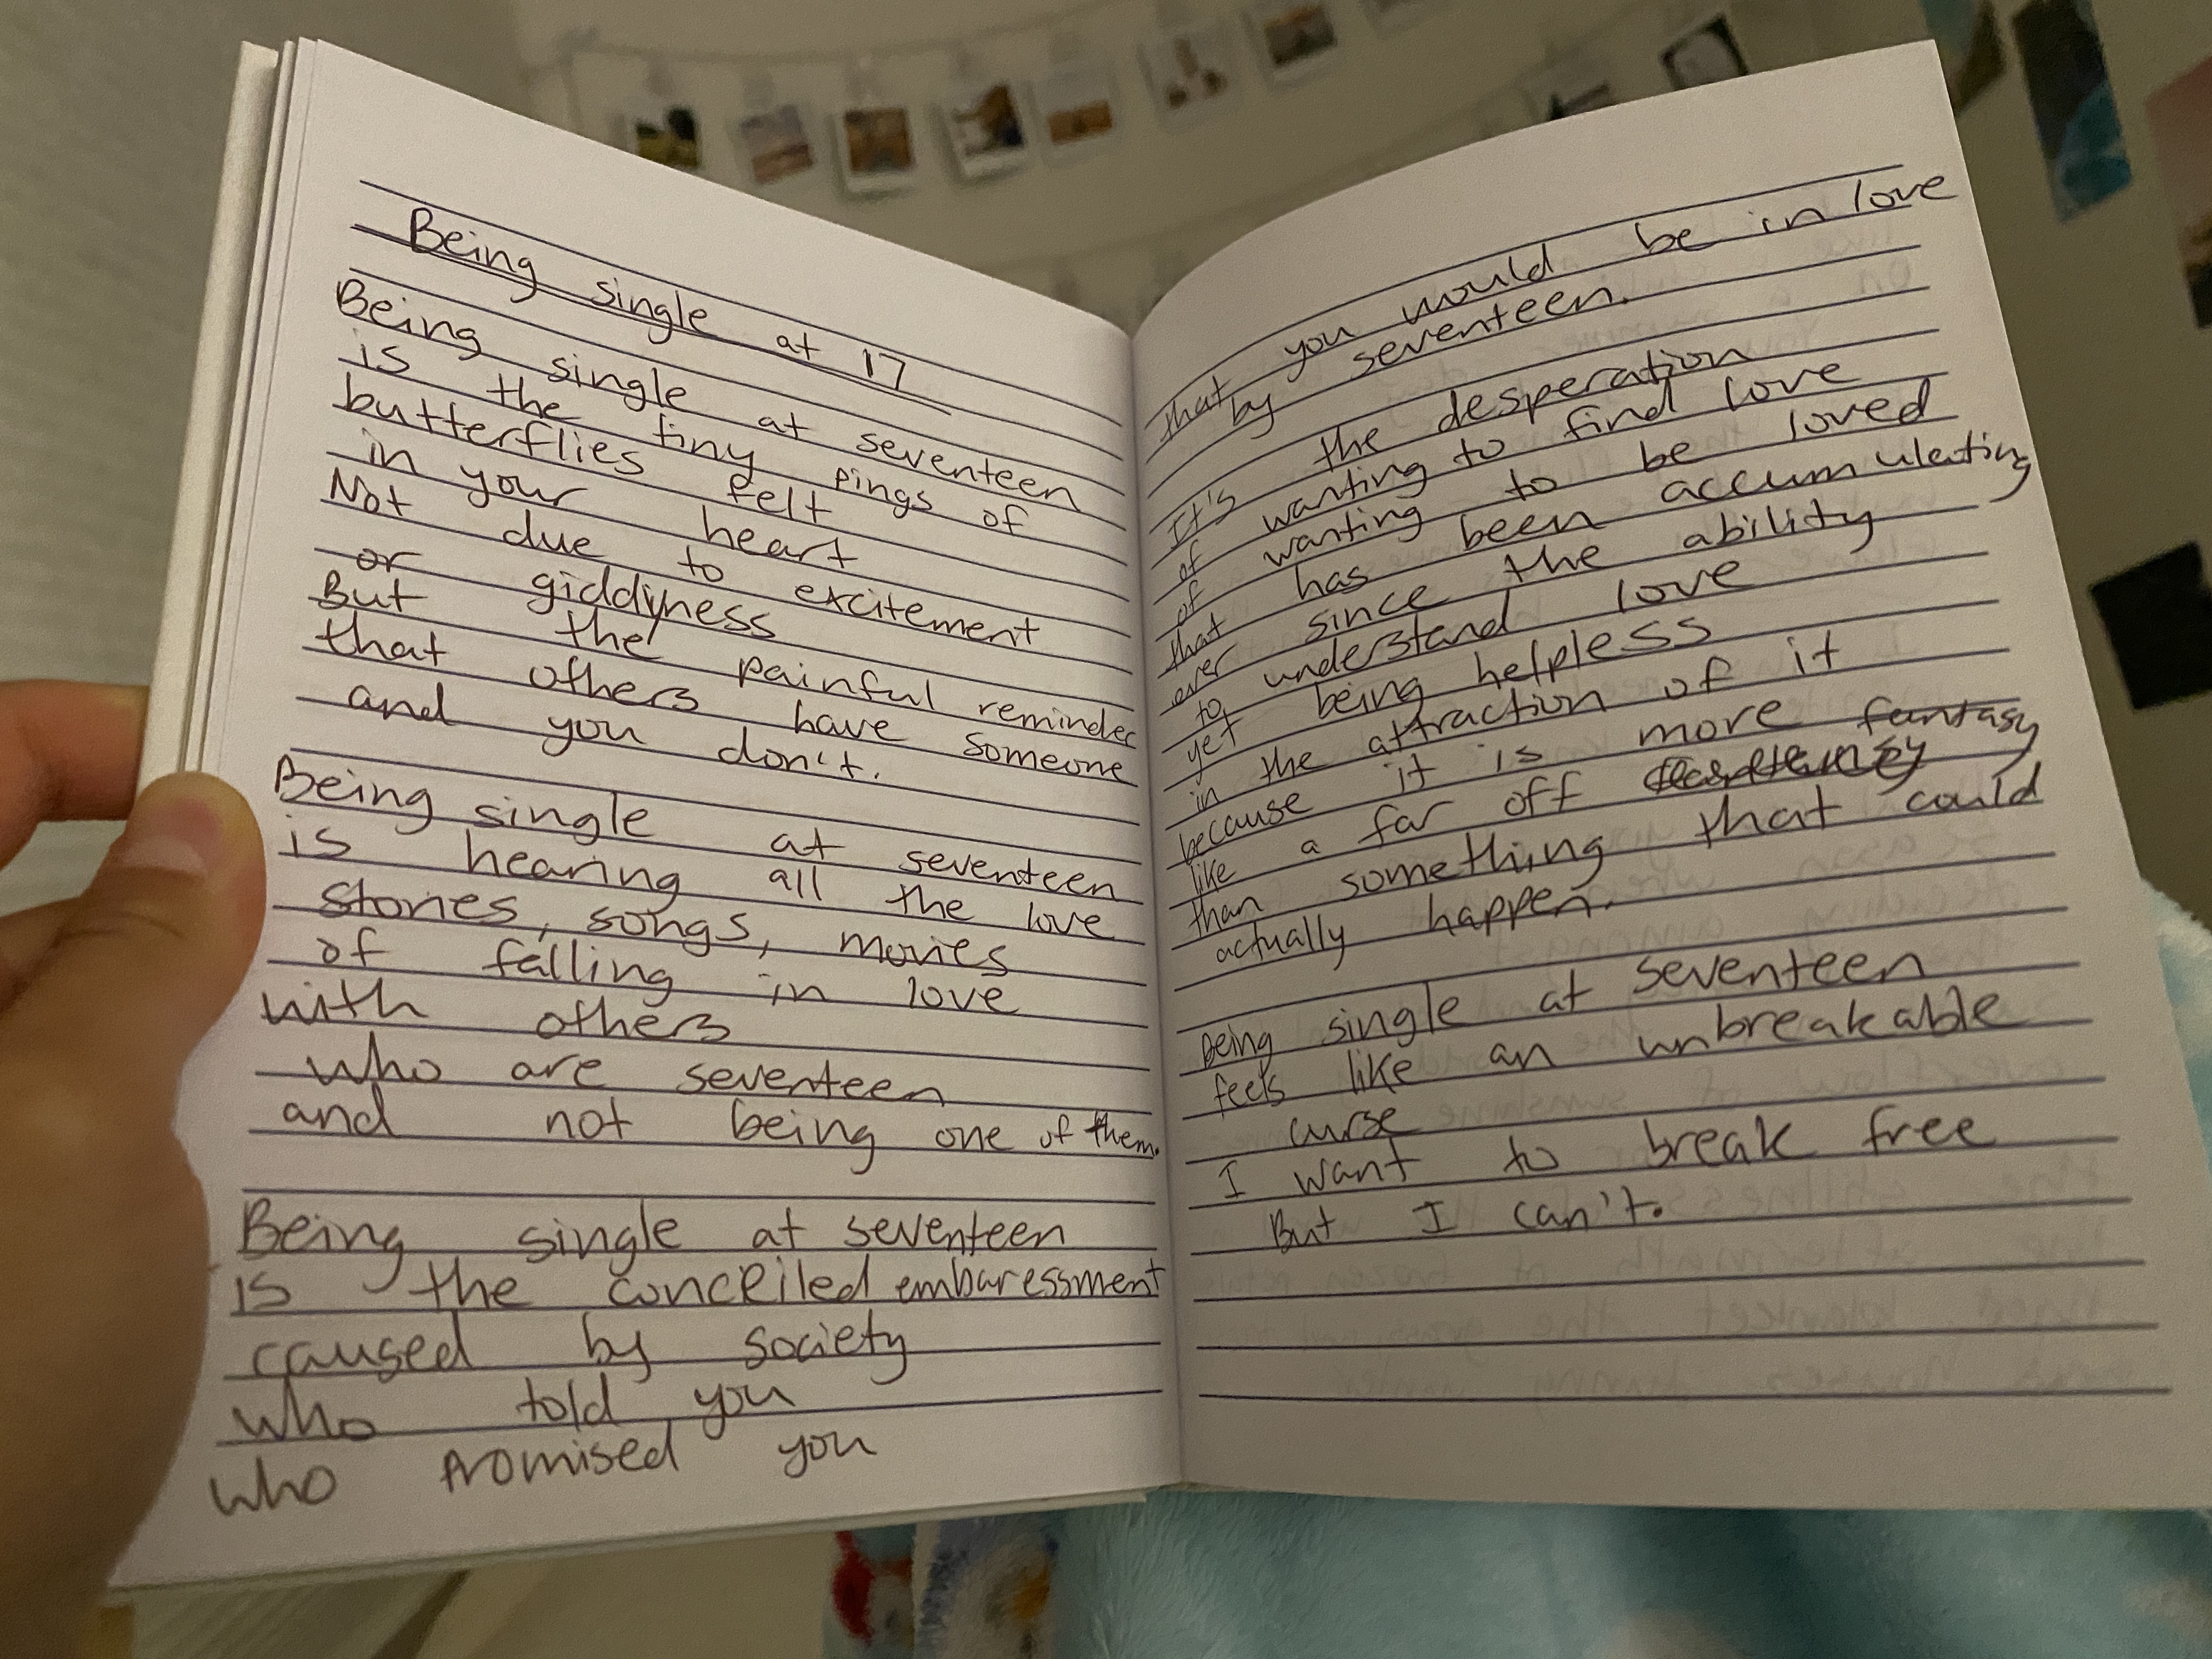 Being single at 17
Being single at seventeen
is the tiny pings of
butterflies felt
in your heart
Not due to excitement
or giddyness
But the painful reminder
that others have someone
and you don't.
Being single at seventeen
is hearing all the love
stories, songs, movies
of falling in love
with others
who are seventeen
and not being one of them.
Being single at seventeen
is the conceiled embaressment
caused by society
who told you
who promised you
that you would be in love
by seventeen.
It's the desperation
of wanting to find love
of wanting to be loved
that has been accumulating
ever since the ability
to understand love
yet being helpless
in the attraction of it
because it is more
like a far off fantasy
than something that could
actually happen.
Being single at seventeen
feels like an unbreakable
curse
I want to break free
But I can't.